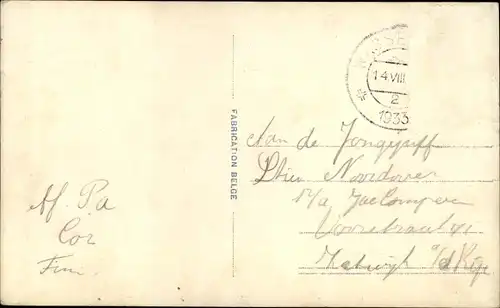 14 VIII
2
1933
FABRICATION BELGE
Aan de Jongejuff
Noordover
p/a Jac
Voorstraat 41
Katwijk a/d Rijn
Af. Pa
Cor